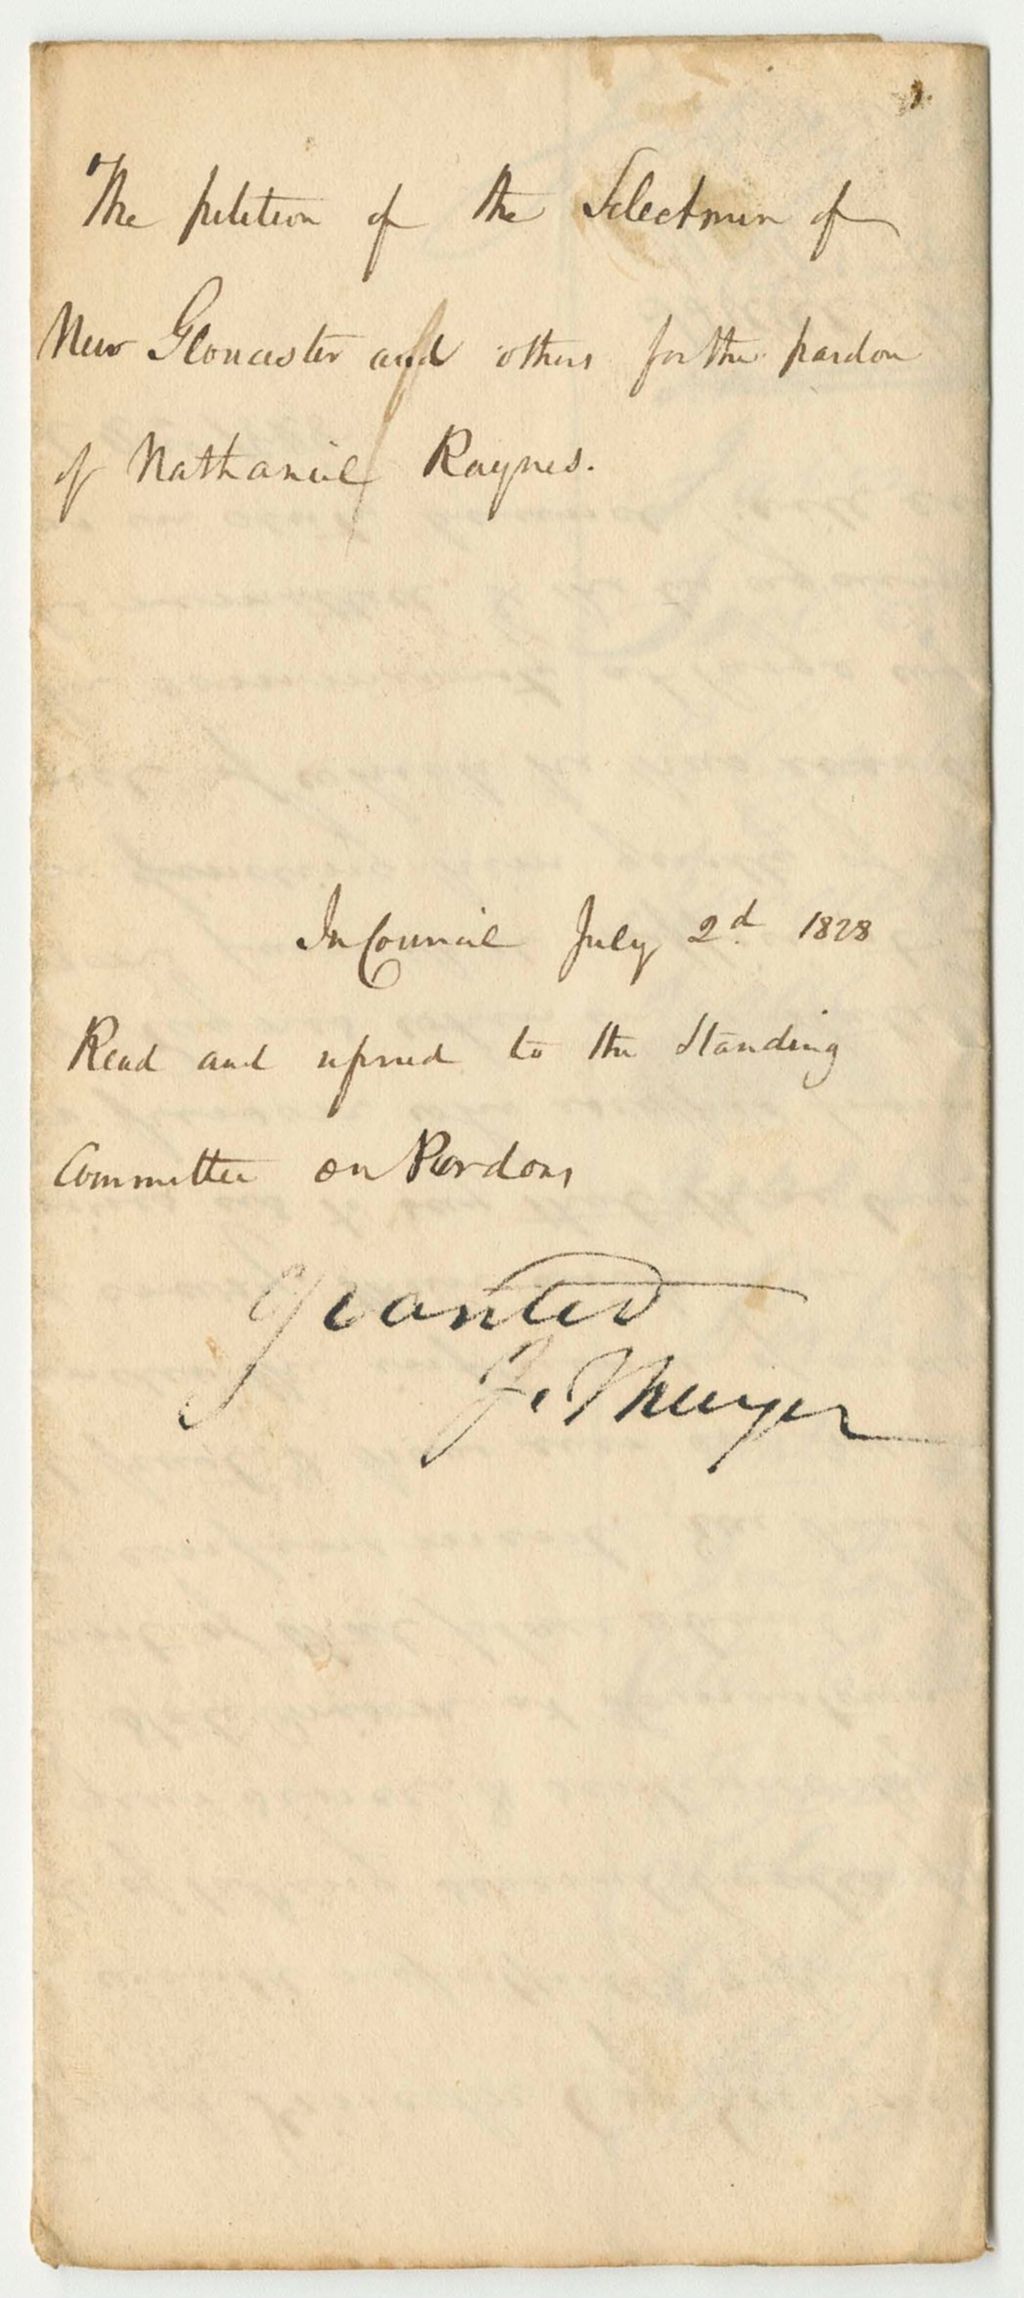 The petition of the Selectmen of
New Gloucester and others for the pardon
of Nathaniel Raynes.
In Council July 2d 1828
Read and referred to the Standing
Committee on Pardons
Granted
J. Thayer